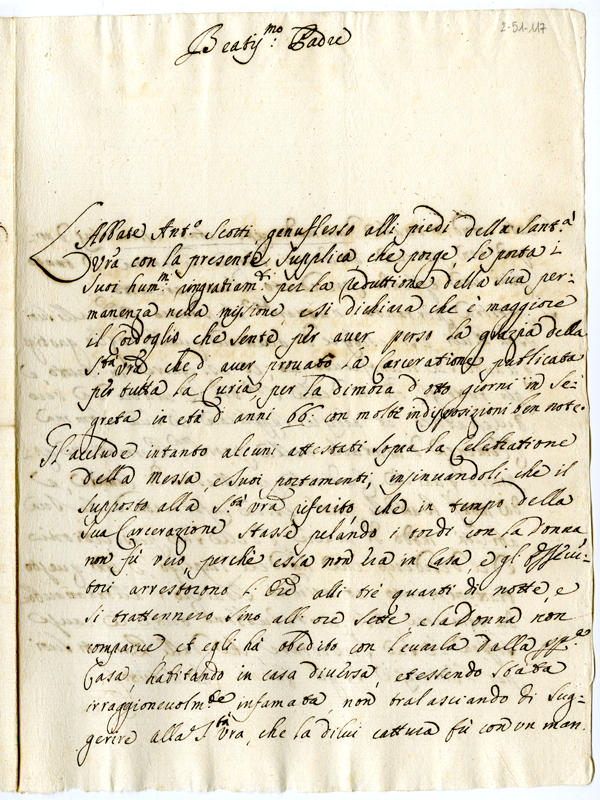 2-51-117
Beatiss.mo Padre
L'Abbate Ant.o Scotti genuflesso alli piedi della Sant.a
Vrã con la presente supplica che porge, le porta i
suoi hum.mi ringratiam.ti per la reduttione della sua per=
manenza nella missione, e si dichiara che è maggiore
il Cordoglio che sente per aver perso la grazia della
S.tà Vrã che d'aver provato la Carceratione publicata
per tutta la Curia per la dimora d'otto giorni in Se=
greta in età d'anni 66: con molte indisposizioni ben note.
Gl'acclude intanto alcuni attestati sopra la Celebratione
della Messa, e suoi portamenti, insinuandoli che il
supposto alla S.tà Vrã riferito, che in tempo della
sua Carcerazione stasse pelando i tordi con la Donna
non fù vero, perchè essa non era in Casa, e gl'essecu=
tori arrestorono l'Ore alli trè quarti di notte, e
si trattennero sino all'ore sette e la Donna non
comparve et egli hà obedito con levarla dalla
Casa, habitando in casa diversa, et essendo stata
irraggionevolm.te infamata, non tralasciando di sug=
gerire alla S.tà Vrã, che la dilui cattura fù con un man